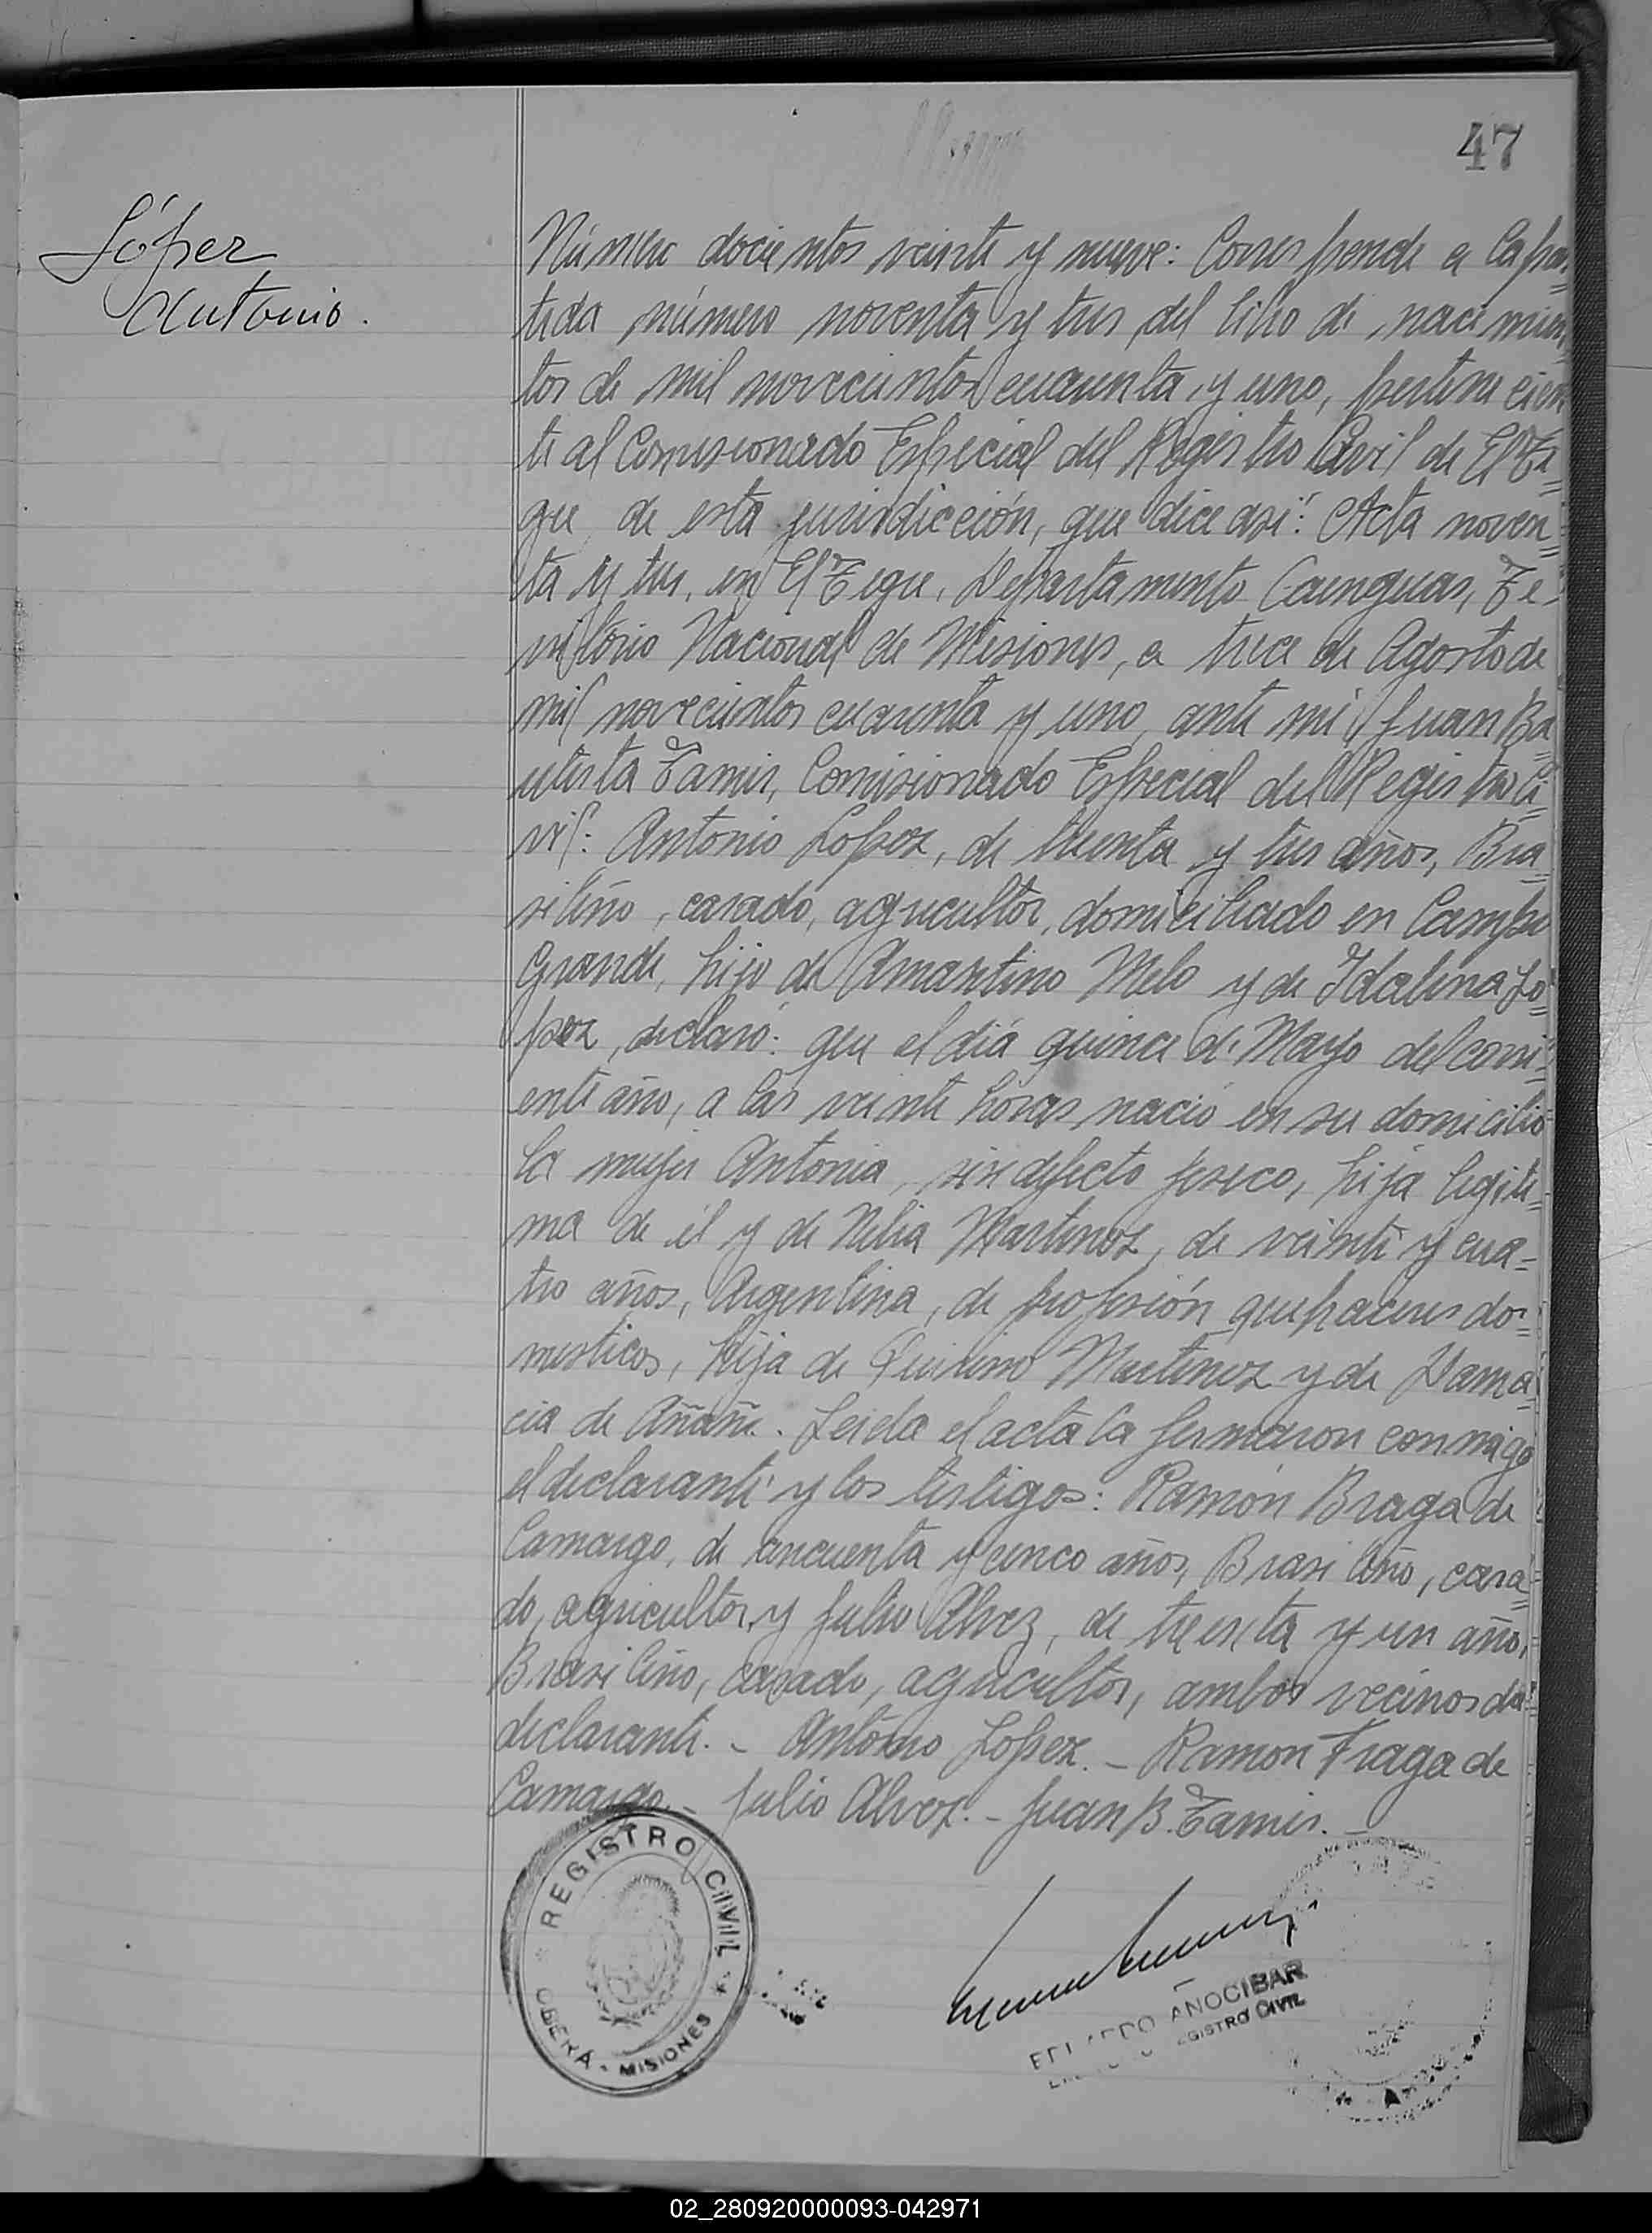 47
López
Antonio.
Número docientos veinte y nueve: Corresponde a la par=
tida número noventa y tres del libro de nacimien=
tos de mil novecientos cuarenta y uno, pertenecien
te al Comisionado Especial del Registro Civil de El Ti=
gre, de esta jurisdicción, que dice asi: "Acta noven=
ta y tres, en El Tigre, Departamento Cainguas, Te-
rritorio Nacional de Misiones, a trece de Agosto de
mil novecientos cuarenta y uno, ante mí, Juan Ba=
utista Tamis, Comisionado Especial del Registro Ci=
vil: Antonio Lopez, de treinta y tres años, Bra=
sileño, casado, agricultor, domiciliado en Campo
Grande, hijo de Amantino Melo y de Idalina Lo=
pez, declaró: que el día quince de Mayo del corri=
ente año, a las veinte horas nació en su domicilio
la mujer Antonia, sin defecto fisico, hija legiti-
ma de él y de Nelia Martinez, de veinte y cua-
tro años, Argentina, de profesión quehaceres do=
mesticos, hija de Quirino Martinez y de Dama=
cia de . Leida el acta la firmaron conmigo
el declarante y los testigos: Ramón Braga de
Camargo, de cincuenta y cinco años, Brasileño, casa=
do, agricultor, y Julio Alvez, de treinta y un año,
Brasileño, casado, agricultor, ambos vecinos del
declarante.- Antonio Lopez.- Ramon Fraga de
Camargo.- Julio Alvez.- Juan B. Tamis.-
REGISTRO CIVIL
OBERÁ - MISIONES
AÑOCIBAR
REGISTRO CIVIL
02_280920000093-042971